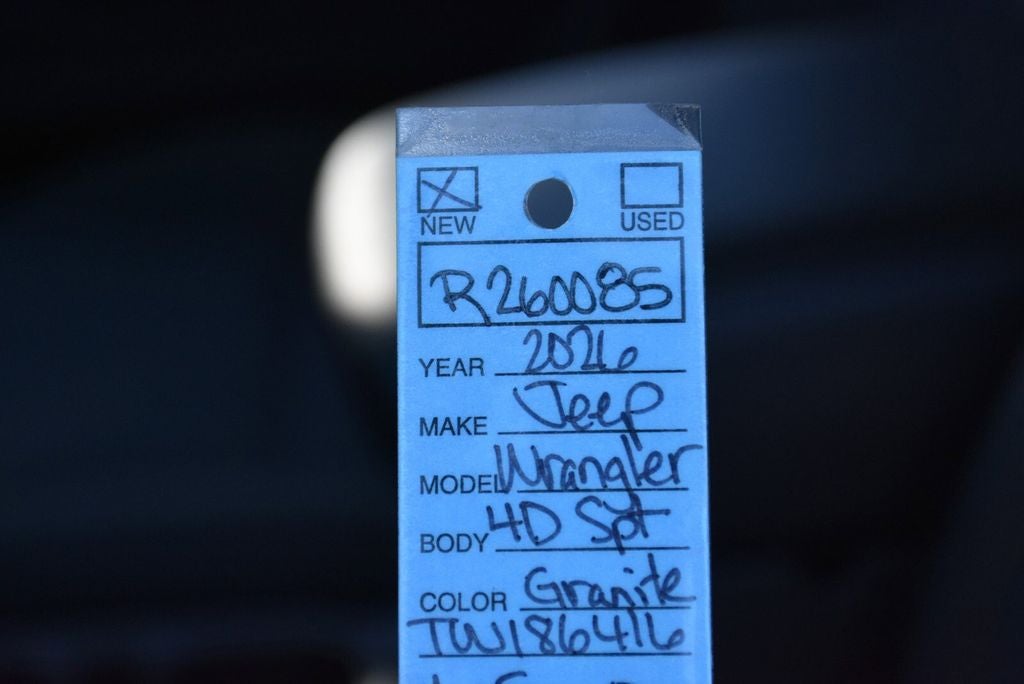 NEW USED
R260085
YEAR 2026
MAKE Jeep
MODEL Wrangler
BODY 4D Spt
COLOR Granite
TW186416